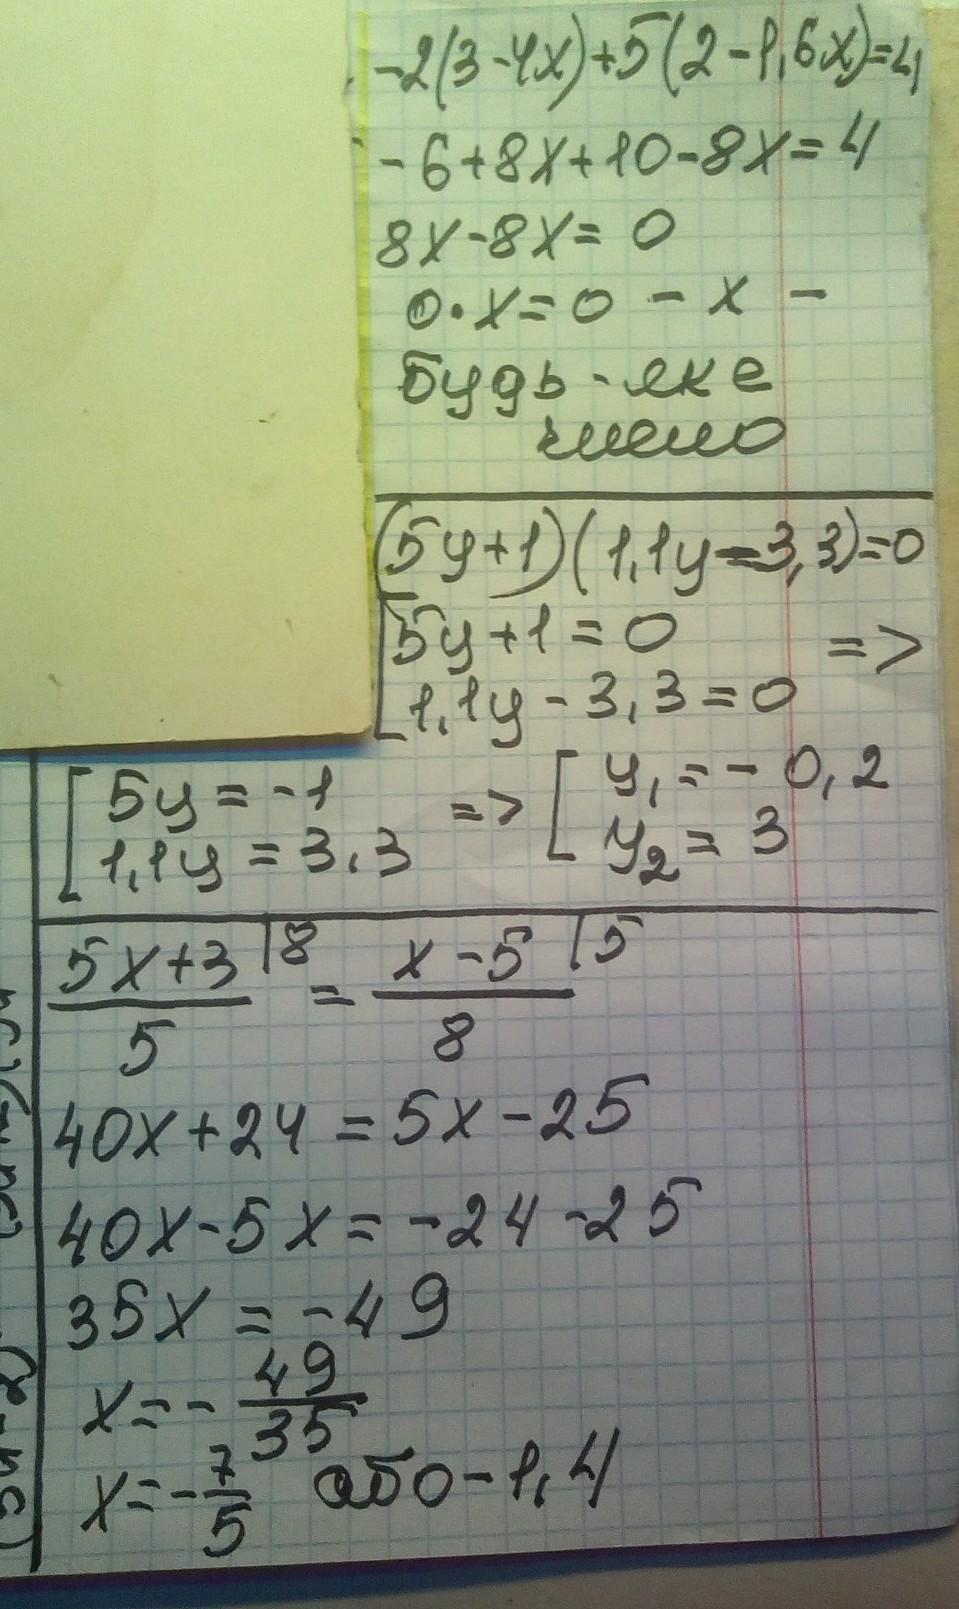 -2(3-4x)+5(2-1,6x)=4
-6+8x+10-8x=4
8x-8x=0
0·x=0 - x -
будь-яке
число
(5y+1)(1,1y-3,3)=0
[5y+1=0 =>
1,1y-3,3=0
[5y=-1 => [y₁=-0,2
1,1y=3,3 y₂=3
5x+3 |8 = x-5 |5
5 8
40x+24=5x-25
40x-5x=-24-25
35x=-49
x=-49/35
x=-7/5 або -1,4